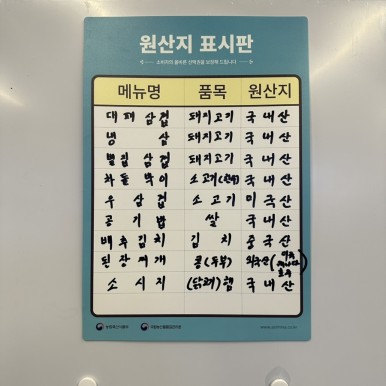 원산지 표시판
소비자의 올바른 선택권을 보장해 드립니다
메뉴명 품목 원산지
대패 삼겹 돼지고기 국내산
냉 삼 돼지고기 국내산
벌집 삼겹 돼지고기 국내산
차돌 박이 소고기 국내산
우 삼겹 소고기 미국산
공 기 밥 쌀 국내산
배추김치 김 치 중국산
된장찌개 콩(두부) 외국산(미국 캐나다 호주
소 시 지 (닭고기)햄 국내산
농림축산식품부 국립농산물품질관리원